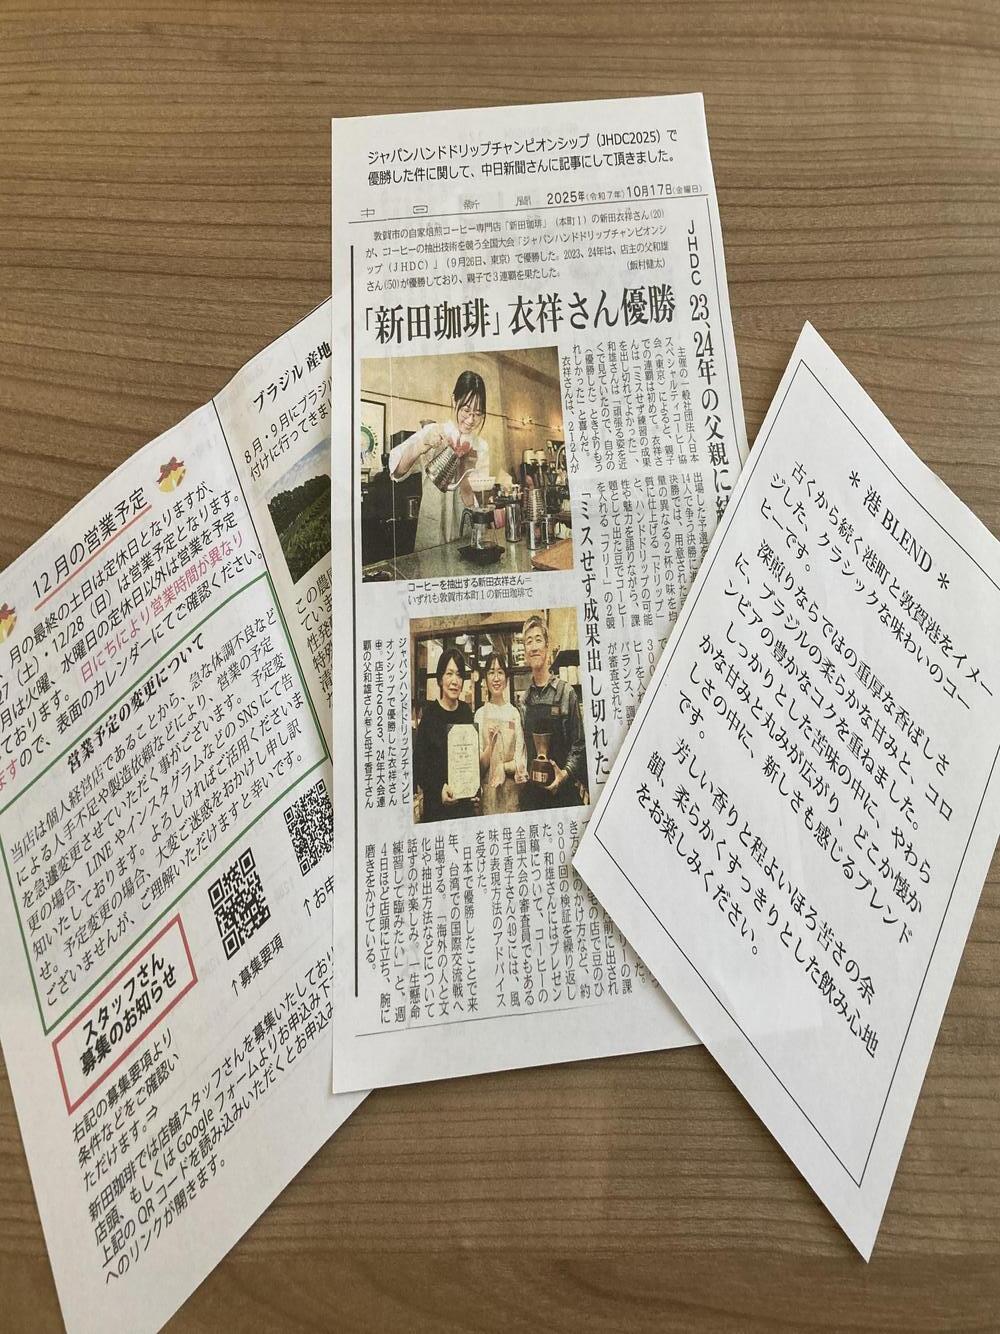 ジャパンハンドドリップチャンピオンシップ（JHDC2025）で
優勝した件に関して、中日新聞さんに記事にして頂きました。
中日新聞 2025年(令和7年)10月17日(金曜日)
敦賀市の自家焙煎コーヒー専門店「新田珈琲」（本町1）の新田衣祥さん(20)
が、コーヒーの抽出技術を競う全国大会「ジャパンハンドドリップチャンピオンシ
ップ（JHDC）」（9月26日、東京）で優勝した。2023、24年は、店主の父和雄
さん(50)が優勝しており、親子で3連覇を果たした。 （飯村健太）
JHDC 23、24年の父親に続
「新田珈琲」衣祥さん優勝
主催の一般社団法人日本
スペシャルティコーヒー協
会（東京）によると、親子
での連覇は初めて。衣祥さ
んは「ミスせず練習の成果
を出し切れてよかった」、
和雄さんは「頑張る姿を近
くで見ていたので、自分の
（優勝した）ときよりもう
れしかった」と喜んだ。
衣祥さんは、212人が
出場した予選を
14人で争う決勝に進
決勝では、用意された
量の異なる2杯の味を均
質に仕上げる「ドリップ」
と、ハンドドリップの可能
性や魅力を語りながら、課
題として出た豆でコーヒー
を入れる「フリー」の2競
「ミスせず成果出し切れた」
ヒーを入
バランス、調
が審査された。
コーヒーを抽出する新田衣祥さん＝
いずれも敦賀市本町1の新田珈琲で
ジャパンハンドドリップチャンピ
オンシップで優勝した衣祥さん㊥
中。店主で2023、24年大会連
覇の父和雄さん㊨と母千香子さん
前に出され
の店で豆のひ
のかけ方など、約
300回の検証を繰り返し
た。和雄さんにはプレゼン
原稿について、コーヒーの
全国大会の審査員でもある
母千香子さん(49)には、風
味の表現方法のアドバイス
を受けた。
日本で優勝したことで来
年、台湾での国際交流戦へ
出場する。「海外の人と文
化や抽出方法などについて
話すのが楽しみ。一生懸命
練習して臨みたい」と、週
4日ほど店頭に立ち、腕に
磨きをかけている。
12月の営業予定
月の最終の土日は定休日となりますが、
27（土）・12/28（日）は営業予定となります。
月は火曜、水曜日の定休日以外は営業を予定
ております。日にちにより営業時間が異なり
ますので、表面のカレンダーにてご確認ください。
営業予定の変更について
当店は個人経営店であることから、急な体調不良など
による人手不足や製造依頼などにより、営業の予定
を急遽変更させていただく事がございます。予定変
更の場合、LINEやインスタグラムなどのSNSにて告
知いたしております。よろしければご活用くださいま
せ。予定変更の場合、大変ご迷惑をおかけし申し訳
ございませんが、ご理解いただけますと幸いです。
スタッフさん
募集のお知らせ
↑募集要項
↑お申
右記の募集要項より
条件などをご確認い
ただけます。⇒
新田珈琲では店舗スタッフさんを募集いたしており
店頭、もしくはGoogleフォームよりお申込み下
上記のQRコードを読み込みいただくとお申込み
へのリンクが開きます。
ブラジル 産地
8月・9月にブラジル
付けに行ってきま
この農
ていま
性発
特殊
漬
＊ 港 BLEND ＊
古くから続く港町と敦賀港をイメー
ジした、クラシックな味わいのコー
ヒーです。
深煎りならではの重厚な香ばしさ
に、ブラジルの柔らかな甘みと、コロ
ンビアの豊かなコクを重ねました。
しっかりとした苦味の中に、やわら
かな甘みと丸みが広がり、どこか懐か
しさの中に、新しさも感じるブレンド
です。
芳しい香りと程よいほろ苦さの余
韻、柔らかくすっきりとした飲み心地
をお楽しみください。